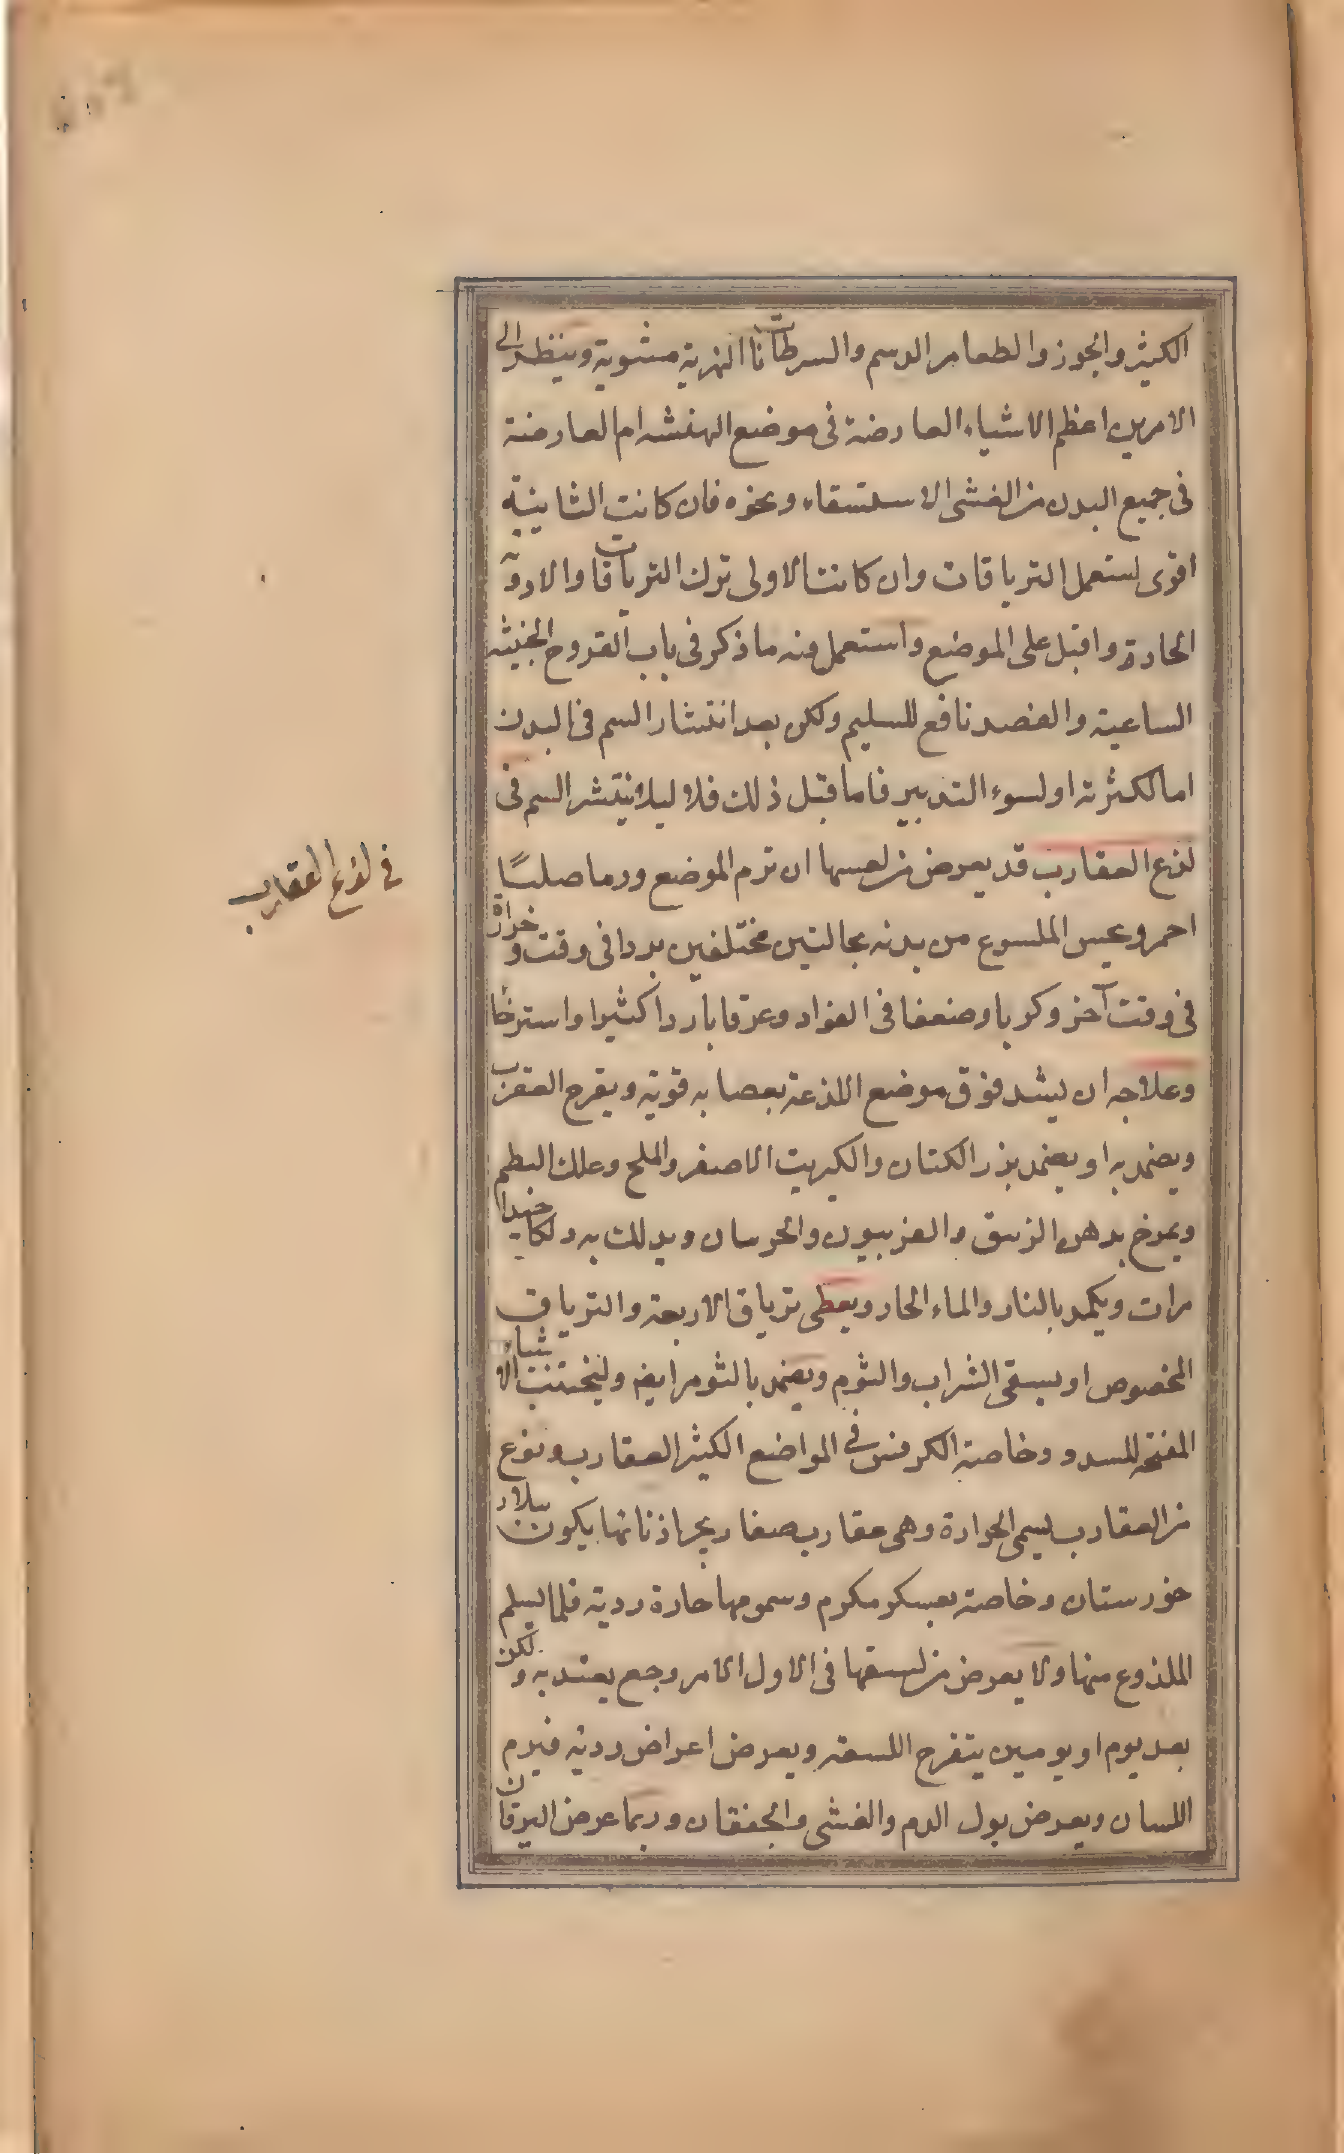 الكثير والجوز والطعام الدسم والسرطانات النهرية مشوية وينظر الى
الامرين اعظم الاشياء العارضة فى موضع النهشه ام العارضة
فى جميع البدن من الغشى الاستسقاء ونحوه فان كانت الثانية
اقوى استعمل الترياقات وان كانت الاولى ترك الترياقات والادوية
الحادة واقبل على الموضع واستعمل منه ما ذكر فى باب القروح الخبيثه
الساعية والفصد نافع للسليم ولكن بعد انتشار السم فى البدن
اما لكثرته او لسوء التدبير فاما قبل ذلك فلا ليلا ينتشر السم فى
لذع العقارب قد يعرض من لعسها ان ترم الموضع ورما صلبًا
احمر ويحس الملسوع من بدنه بحالتين مختلفين بردا فى وقت وحرارة
فى وقت آخر وكربا وضعفا فى الفواد وعرقا باردا كثيرا واسترخا
وعلاجه ان يشد فوق موضع اللذعة بعصابه قوية ويقرح العقرب
ويضمد به او يضمد بزر الكتان والكبريت الاصفر والملح وعلك البطم
ويمرخ بدهن الزنبق والفربيون والخرسان ويدلك به دلكا جيدا
مرات ويكمد بالنار والماء الحار ويعطى ترياق الاربعة والترياق
المخصوص او يسقى الشراب والثوم ويضمد بالثوم ايضا وليجتنب الاشياء
المفتحه للسدد وخاصة الكرفس فى المواضع الكثير العقارب ونوع
من العقارب يسمى الجرارة وهى عقارب صغار يجر اذنابها يكون ببلاد
خورستان وخاصة بعسكر مكرم وسمومها حارة ردية قلما يسلم
الملذوع منها ولا يعرض من لسعها فى الاول الامر وجع يعتد به ولكن
بعد يوم او يومين يتقرح اللسعة ويعرض اعراض ردية فيرم
اللسان ويعرض بول الدم والغشى والخفقان وربما عرض اليرقان
فى لذع العقارب